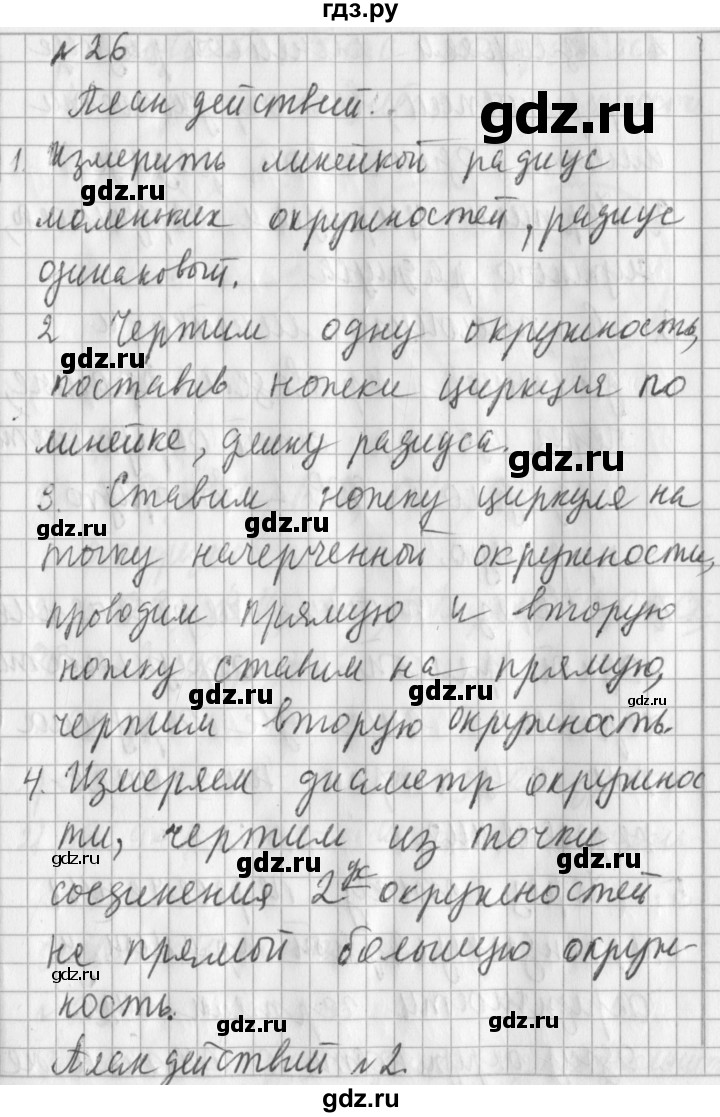 гдз.ру
№ 26
План действий:
gdz.ru
1. Измерить линейкой радиус
gdz.ru
маленьких окружностей, радиус
одинаковый.
gdz.ru
2 Чертим одну окружность,
gdz.ru
поставив ножки циркуля по
линейке, длину радиуса.
gdz.ru
3. Ставим ножку циркуля на
gdz.ru gdz.ru
точку начерченной окружности,
проводим прямую и вторую
ножку ставим на прямую,
gdz.ru gdz.ru gdz.ru
чертим вторую окружность.
4. Измеряем диаметр окружнос
ти, чертим из точки
gdz.ru gdz.ru gdz.ru
соединения 2ух окружностей
на прямой большую окруж-
gdz.ru
ность.
gdz.ru gdz.ru
План действий №2.
gdz.ru